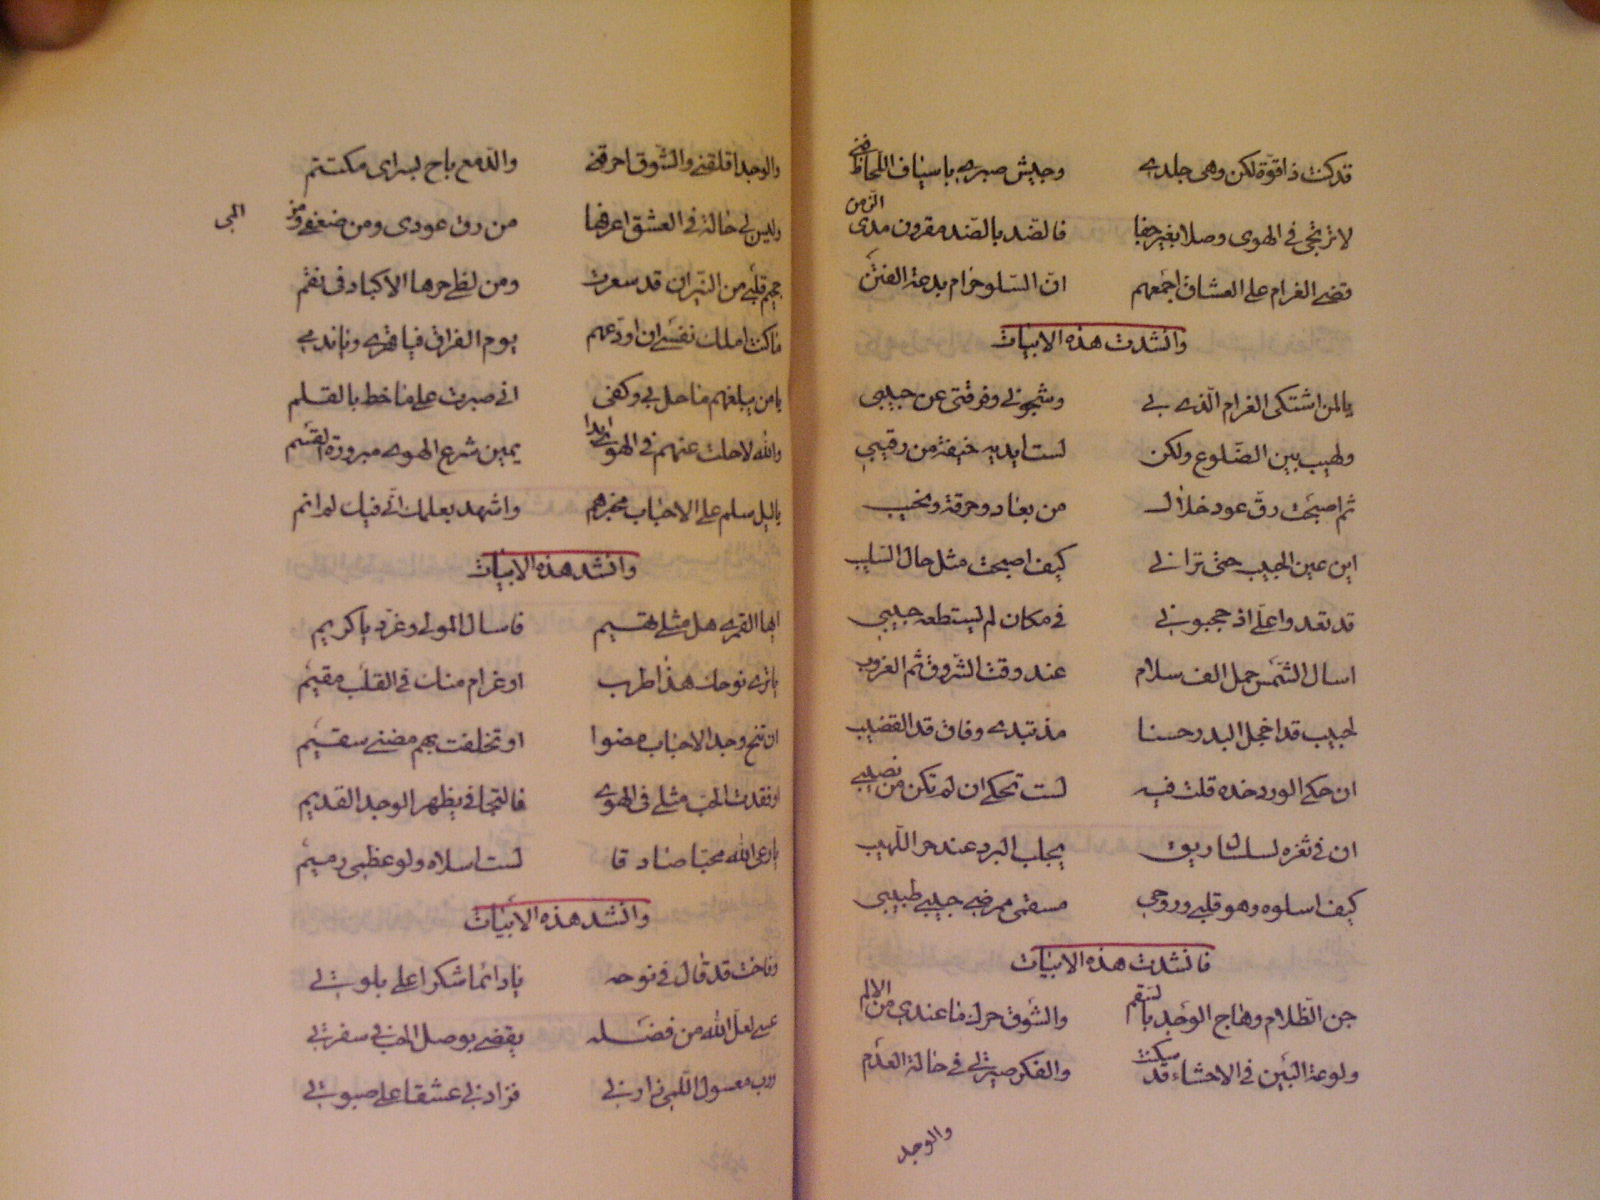 قد كنت ذا قوة لكن وهى جلدي وجيش صبري باسياف اللحاظ فني
لا ترتجي في الهوى وصلا بغير جفا فالضد بالضد مقرون مدى الزمن
قضى الغرام على العشاق اجمعهم ان السلو حرام بدعة الفتن
وانشدت هذه الابيات
يا لمن اشتكى الغرام الذي بي وشجوني وفرقتي عن حبيبي
ولهيب بين الضلوع ولكن لست ابديه خيفة من رقيبي
ثم اصبحت رق عود خلال من بعاد وحرقة ونحيب
اين عين الحبيب حتى تراني كيف اصبحت مثل حال السليب
قد تعدوا علي اذ حجبوني في مكان لم يستطعه حبيبي
اسال الشمس حمل الف سلام عند وقت الشروق ثم الغروب
لحبيب قد اخجل البدر حسنا مذ تبدى وفاق قد القضيب
ان حكى الورد خده قلت فيه لست تحكي ان لم تكن من نصيبي
ان في ثغره لسلسال ريق يجلب البرد عند حر اللهيب
كيف اسلوه وهو قلبي وروحي مسقمي ممرضي حبيبي طبيبي
فانشدت هذه الابيات
جن الظلام وهاج الوجد بالسقم والشوق حرك ما عندي من الالم
ولوعة البين في الاحشاء قد سكنت والفكر صيرني في حالة العدم
والوجد
والوجد اقلقني والشوق احرقني والدمع باح بسر اى مكتتم
وليس لي حالة في العشق اعرفها من رق عودي ومن ضعفي ومن المي
جحيم قلبي من النيران قد سعرت ومن لظى حرها الاكباد في نقم
ما كنت املك نفسي ان اودعهم يوم الفراق فيا قهري ويا ندمي
يا من يبلغهم ما حل بي وكفى اني صبرت على ما خط بالقلم
والله لا حلت عنهم في الهوى ابدا يمين شرع الهوى مبرورة القسم
يا ليل سلم على الاحباب مخبرهم واشهد بعلمك اني فيك لم انم
وانشد هذه الابيات
ايها القمري هل مثلي تهيم فاسال المولى وغرد يا كريم
يا ترى نوحك هذا طرب او غرام منك في القلب مقيم
ان تنح وجد الاحباب مضوا او تخلفت بهم مضنى سقيم
او فقدت الحب مثلي في الهوى فالتجافي يظهر الوجد القديم
يا رعى الله محبا صادقا لست اسلاه ولو عظمي رميم
وانشد هذه الابيات
وفاخت قد قال في نوحه يا دائما شكرا على بلوتي
عسى لعل الله من فضله يقضي بوصل الحب في سفرتي
ورب معسول اللمى زارني فزادني عشقا على صبوتي